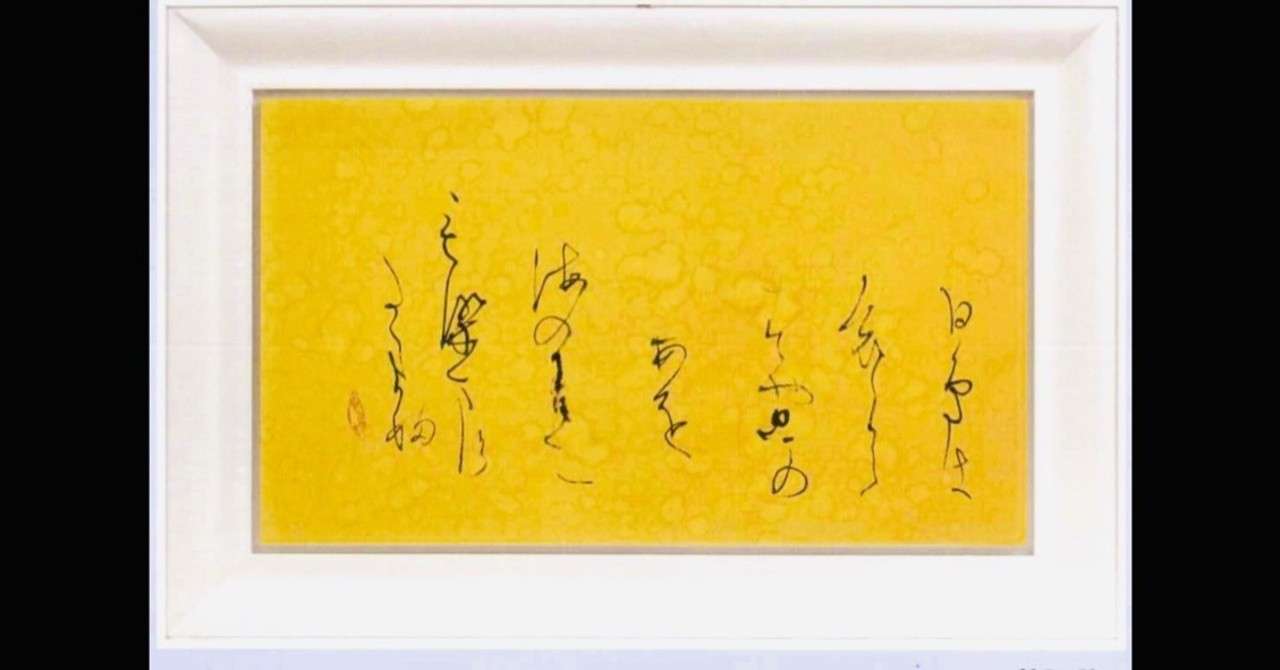 白鳥は
哀しから
ずや空の
あを
海の青に
も染まず
たゞよふ